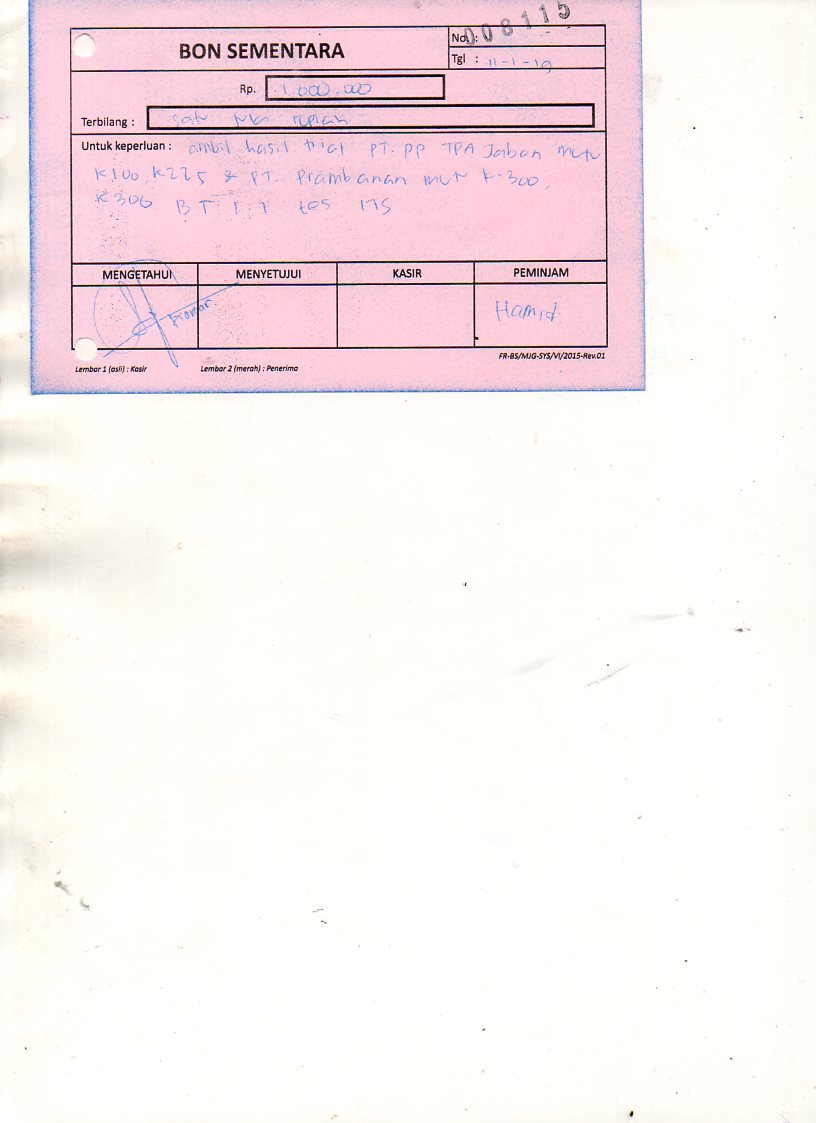 BON SEMENTARA
No. : 008115
Tgl : 11-1-19
Rp. 1.000.000
Terbilang : satu juta rupiah
Untuk keperluan : ambil hasil trial PT. PP TPA Jabon mutu
K100, K225 & PT. Prambanan mutu K-300,
K300 tes ITS
MENGETAHUI MENYETUJUI KASIR PEMINJAM
Hamid
FR-BS/MJG-SYS/VI/2015-Rev.01
Lembar 1 (asli) : Kasir Lembar 2 (merah) : Penerima